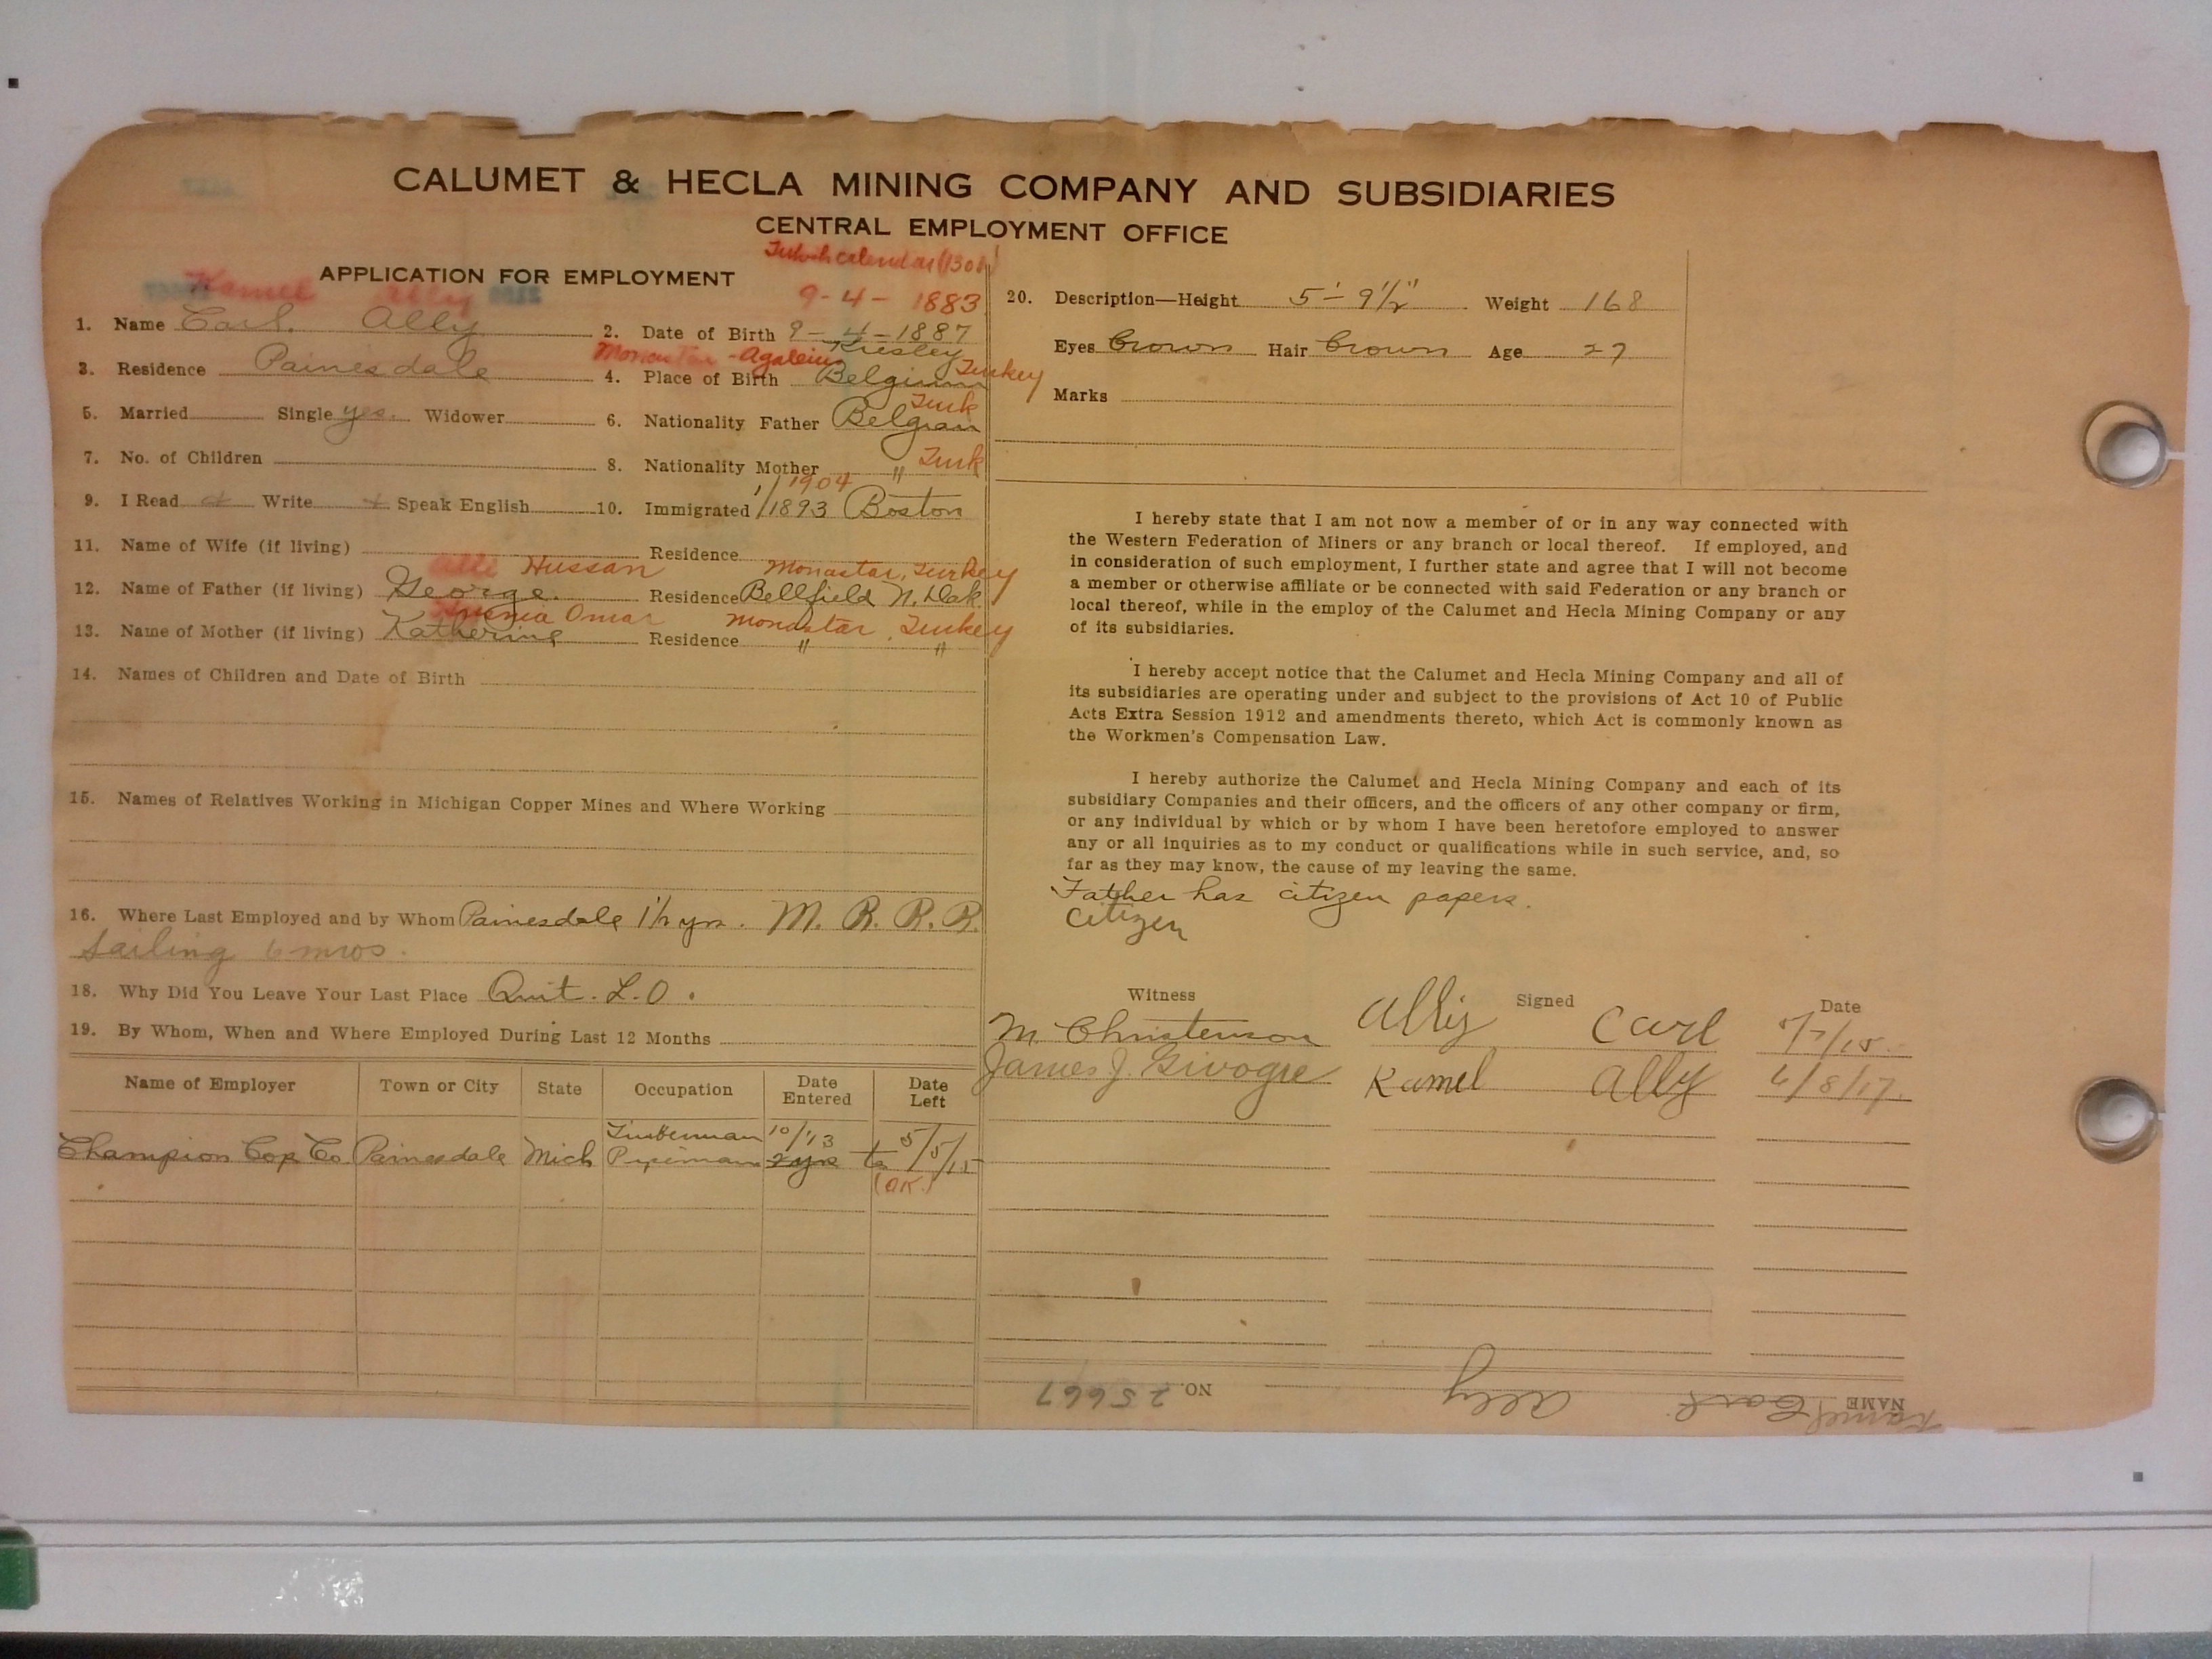 CALUMET & HECLA MINING COMPANY AND SUBSIDIARIES
CENTRAL EMPLOYMENT OFFICE
APPLICATION FOR EMPLOYMENT
Turkish calendar (130
Kamel Ally
9-4- 1883
1. Name Carl. Ally 2. Date of Birth 9-4-1887
Monastar
3. Residence Painesdale 4. Place of Birth Belgium Turkey
5. Married Single yes. Widower 6. Nationality Father Belgian Turk
7. No. of Children 8. Nationality Mother " Turk
9. I Read Write Speak English 10. Immigrated 1/1893 Boston 1/1904
11. Name of Wife (if living) Residence
Alli Hussan Monastar, Turkey
12. Name of Father (if living) George. Residence Bellfield N. Dak.
Omar Monastar, Turkey
13. Name of Mother (if living) Katherine Residence " "
14. Names of Children and Date of Birth
15. Names of Relatives Working in Michigan Copper Mines and Where Working
16. Where Last Employed and by Whom Painesdale 1½ yrs. M. R. R. R.
Sailing 6 mos.
18. Why Did You Leave Your Last Place Quit. L.O.
19. By Whom, When and Where Employed During Last 12 Months
Name of Employer Town or City State Occupation Date Entered Date Left
Timberman 10/13
Champion Cop. Co. Painesdale Mich Pipeman 2 yrs to 5/5/15
(OK.)
20. Description—Height 5'-9½" Weight 168
Eyes Brown Hair Brown Age 27
Marks
I hereby state that I am not now a member of or in any way connected with
the Western Federation of Miners or any branch or local thereof. If employed, and
in consideration of such employment, I further state and agree that I will not become
a member or otherwise affiliate or be connected with said Federation or any branch or
local thereof, while in the employ of the Calumet and Hecla Mining Company or any
of its subsidiaries.
I hereby accept notice that the Calumet and Hecla Mining Company and all of
its subsidiaries are operating under and subject to the provisions of Act 10 of Public
Acts Extra Session 1912 and amendments thereto, which Act is commonly known as
the Workmen's Compensation Law.
I hereby authorize the Calumet and Hecla Mining Company and each of its
subsidiary Companies and their officers, and the officers of any other company or firm,
or any individual by which or by whom I have been heretofore employed to answer
any or all inquiries as to my conduct or qualifications while in such service, and, so
far as they may know, the cause of my leaving the same.
Father has citizen papers.
Citizen
Witness Signed Date
M. Christenson Ally Carl 5/7/15.
James J. Givogre Kamel Ally 6/8/17.
NAME Kamel Carl Ally NO. 25667